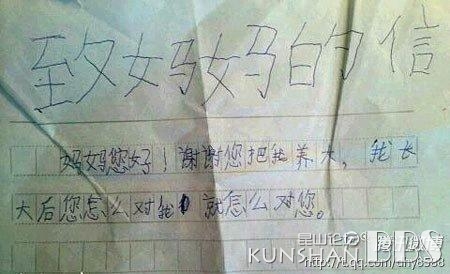 致妈妈的信
妈妈您好!谢谢您把我养大,我长
大后您怎么对我就怎么对您。
昆山论坛
KUNSHAN BBS
腾讯微博